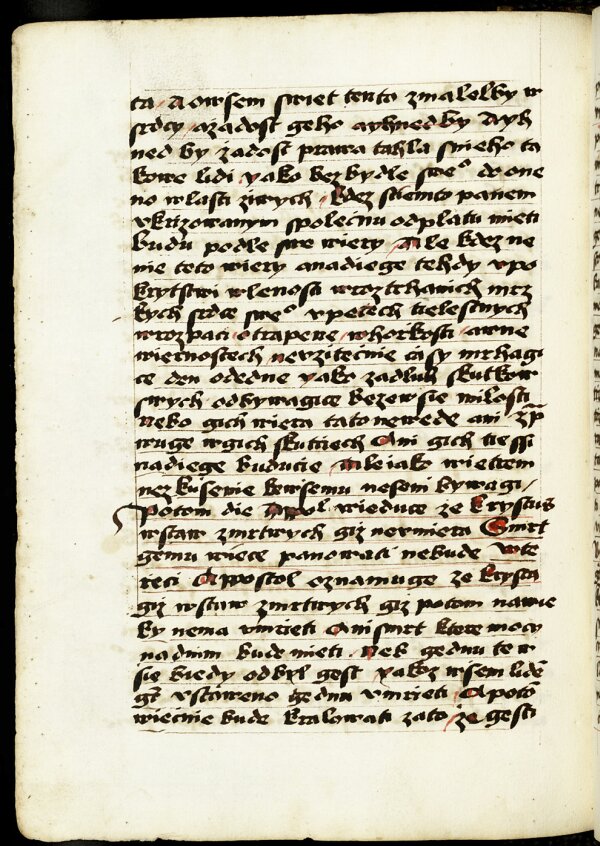 ta / A owsem swiet tento zmalelby w
srdcy / azadost geho ayhned by Ayh
ned by zadost prawa tahla snieho ta
kowe lidi yako bezbydle swe° do one
no wlasti ziwych / kdez stiemto panem
vkrizowanym spolecnu odplatu mieti
budu podle swe wiery / Ale kdez ne
nie teto wiery anadiege tehdy vpo
krytstwi wlenosti wroztrhanich mrz
kych srdce swe° vpetech tielestnych
wrozpaci otrapene / whorkosti awne
wiernostech nevzitecnie casy mrhagi
ce den odedne yako zadluh skutkow
swych odbywagice bezewsie milosti
Nebo gich wiera tato newede ani zp̄
wuge wgich skutciech Ani gich tiessi
nadiege buducie / Ale iako wiettem
nez kusenie kewsemu neseni bywagi /
Potom die Appol wieduce ze krystus
wstaw zmrtwych giz nevmiera Smrt
gemu wiece panowati nebude Wte
reci Appostol oznamuge ze krysta
giz wstaw zmrtwych giz potom nawie
ky nema vmrieti Ani smrt ktere mocy
nadnim bude mieti / Neb gednu te w
sie biedy odbyl gest yakoz wsem lidē
gt̄ vstaweno gednu vmrieti Apotō
wiecnie bude kralowati zato / ze gesti